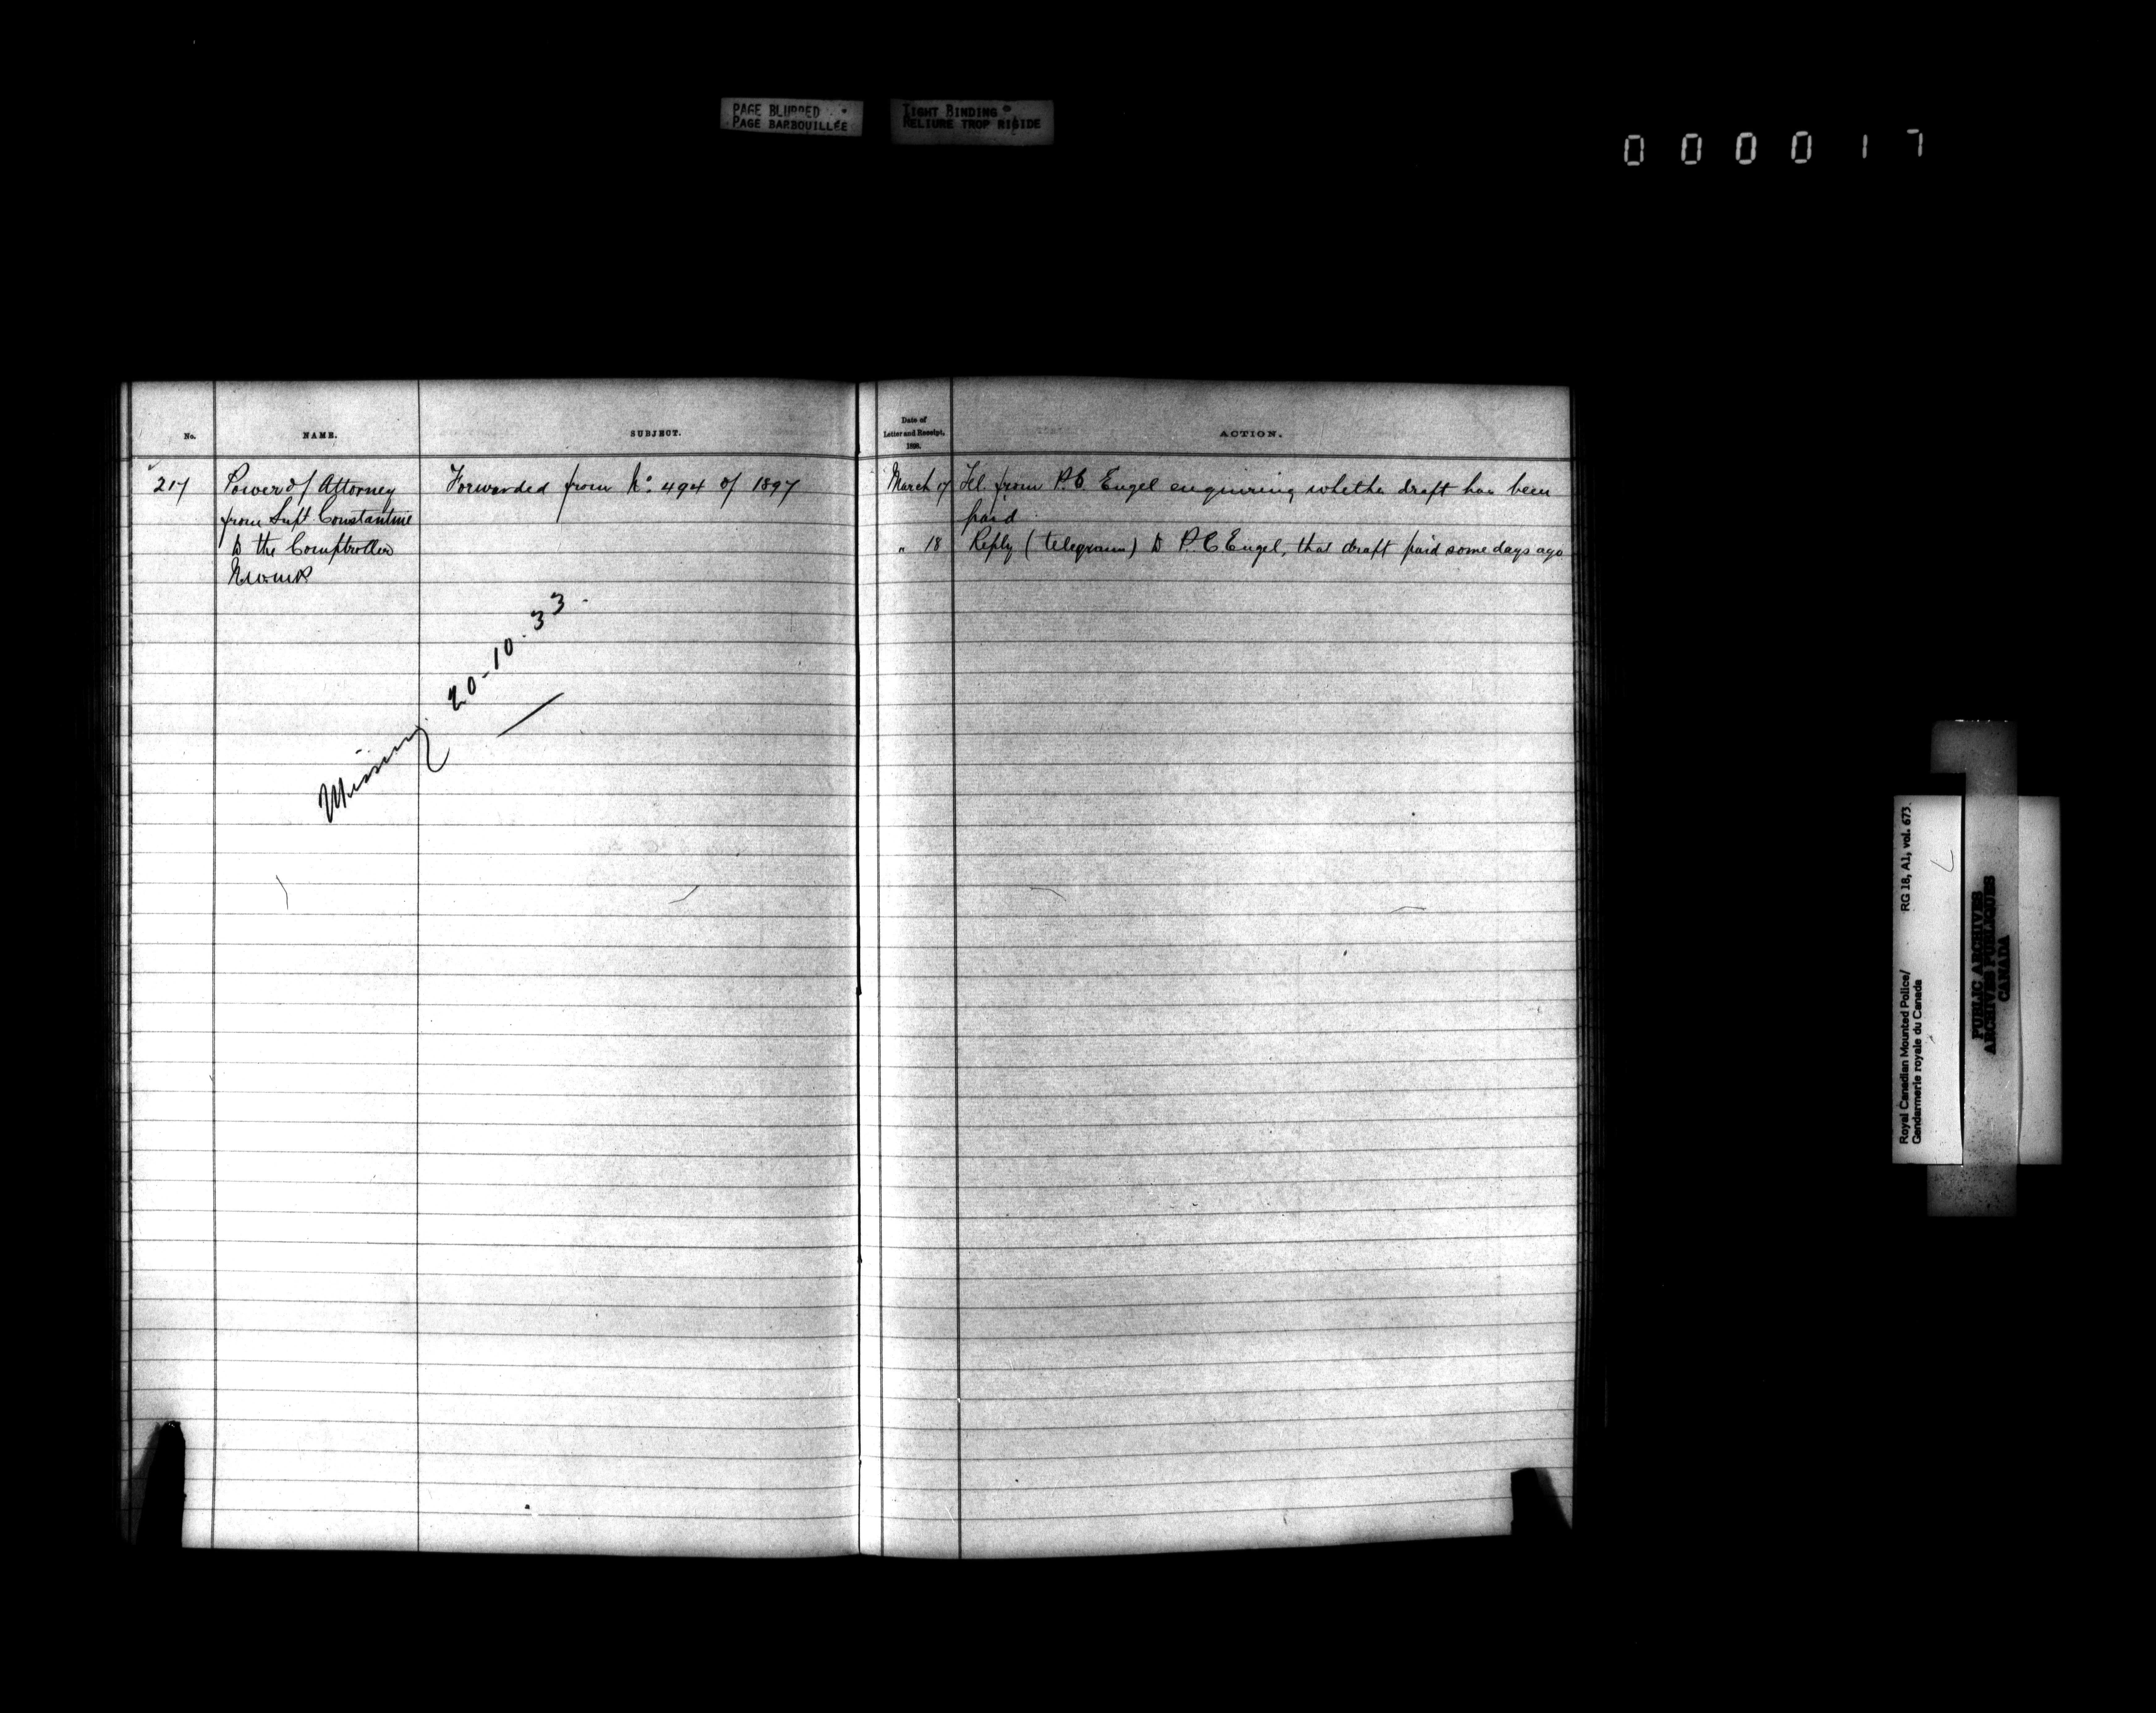 PAGE BLURRED
PAGE BARBOUILLÉE
TIGHT BINDING
RELIURE TROP RIGIDE
000017
No.
NAME.
SUBJECT.
Date of
Letter and Receipt,
1898.
ACTION.
217
Power of Attorney
from Supt Constantine
to the Comptroller
N.W.M.P
Forwarded from No. 494 of 1897
March 17 Tel. from P.C. Engel enquiring whether draft has been
paid
" 18 Reply (telegram) to P.C Engel, that draft paid some days ago
Missing 20-10-33
Royal Canadian Mounted Police/
Gendarmerie royale du Canada
RG 18, A1, vol. 673
PUBLIC ARCHIVES
ARCHIVES PUBLIQUES
CANADA